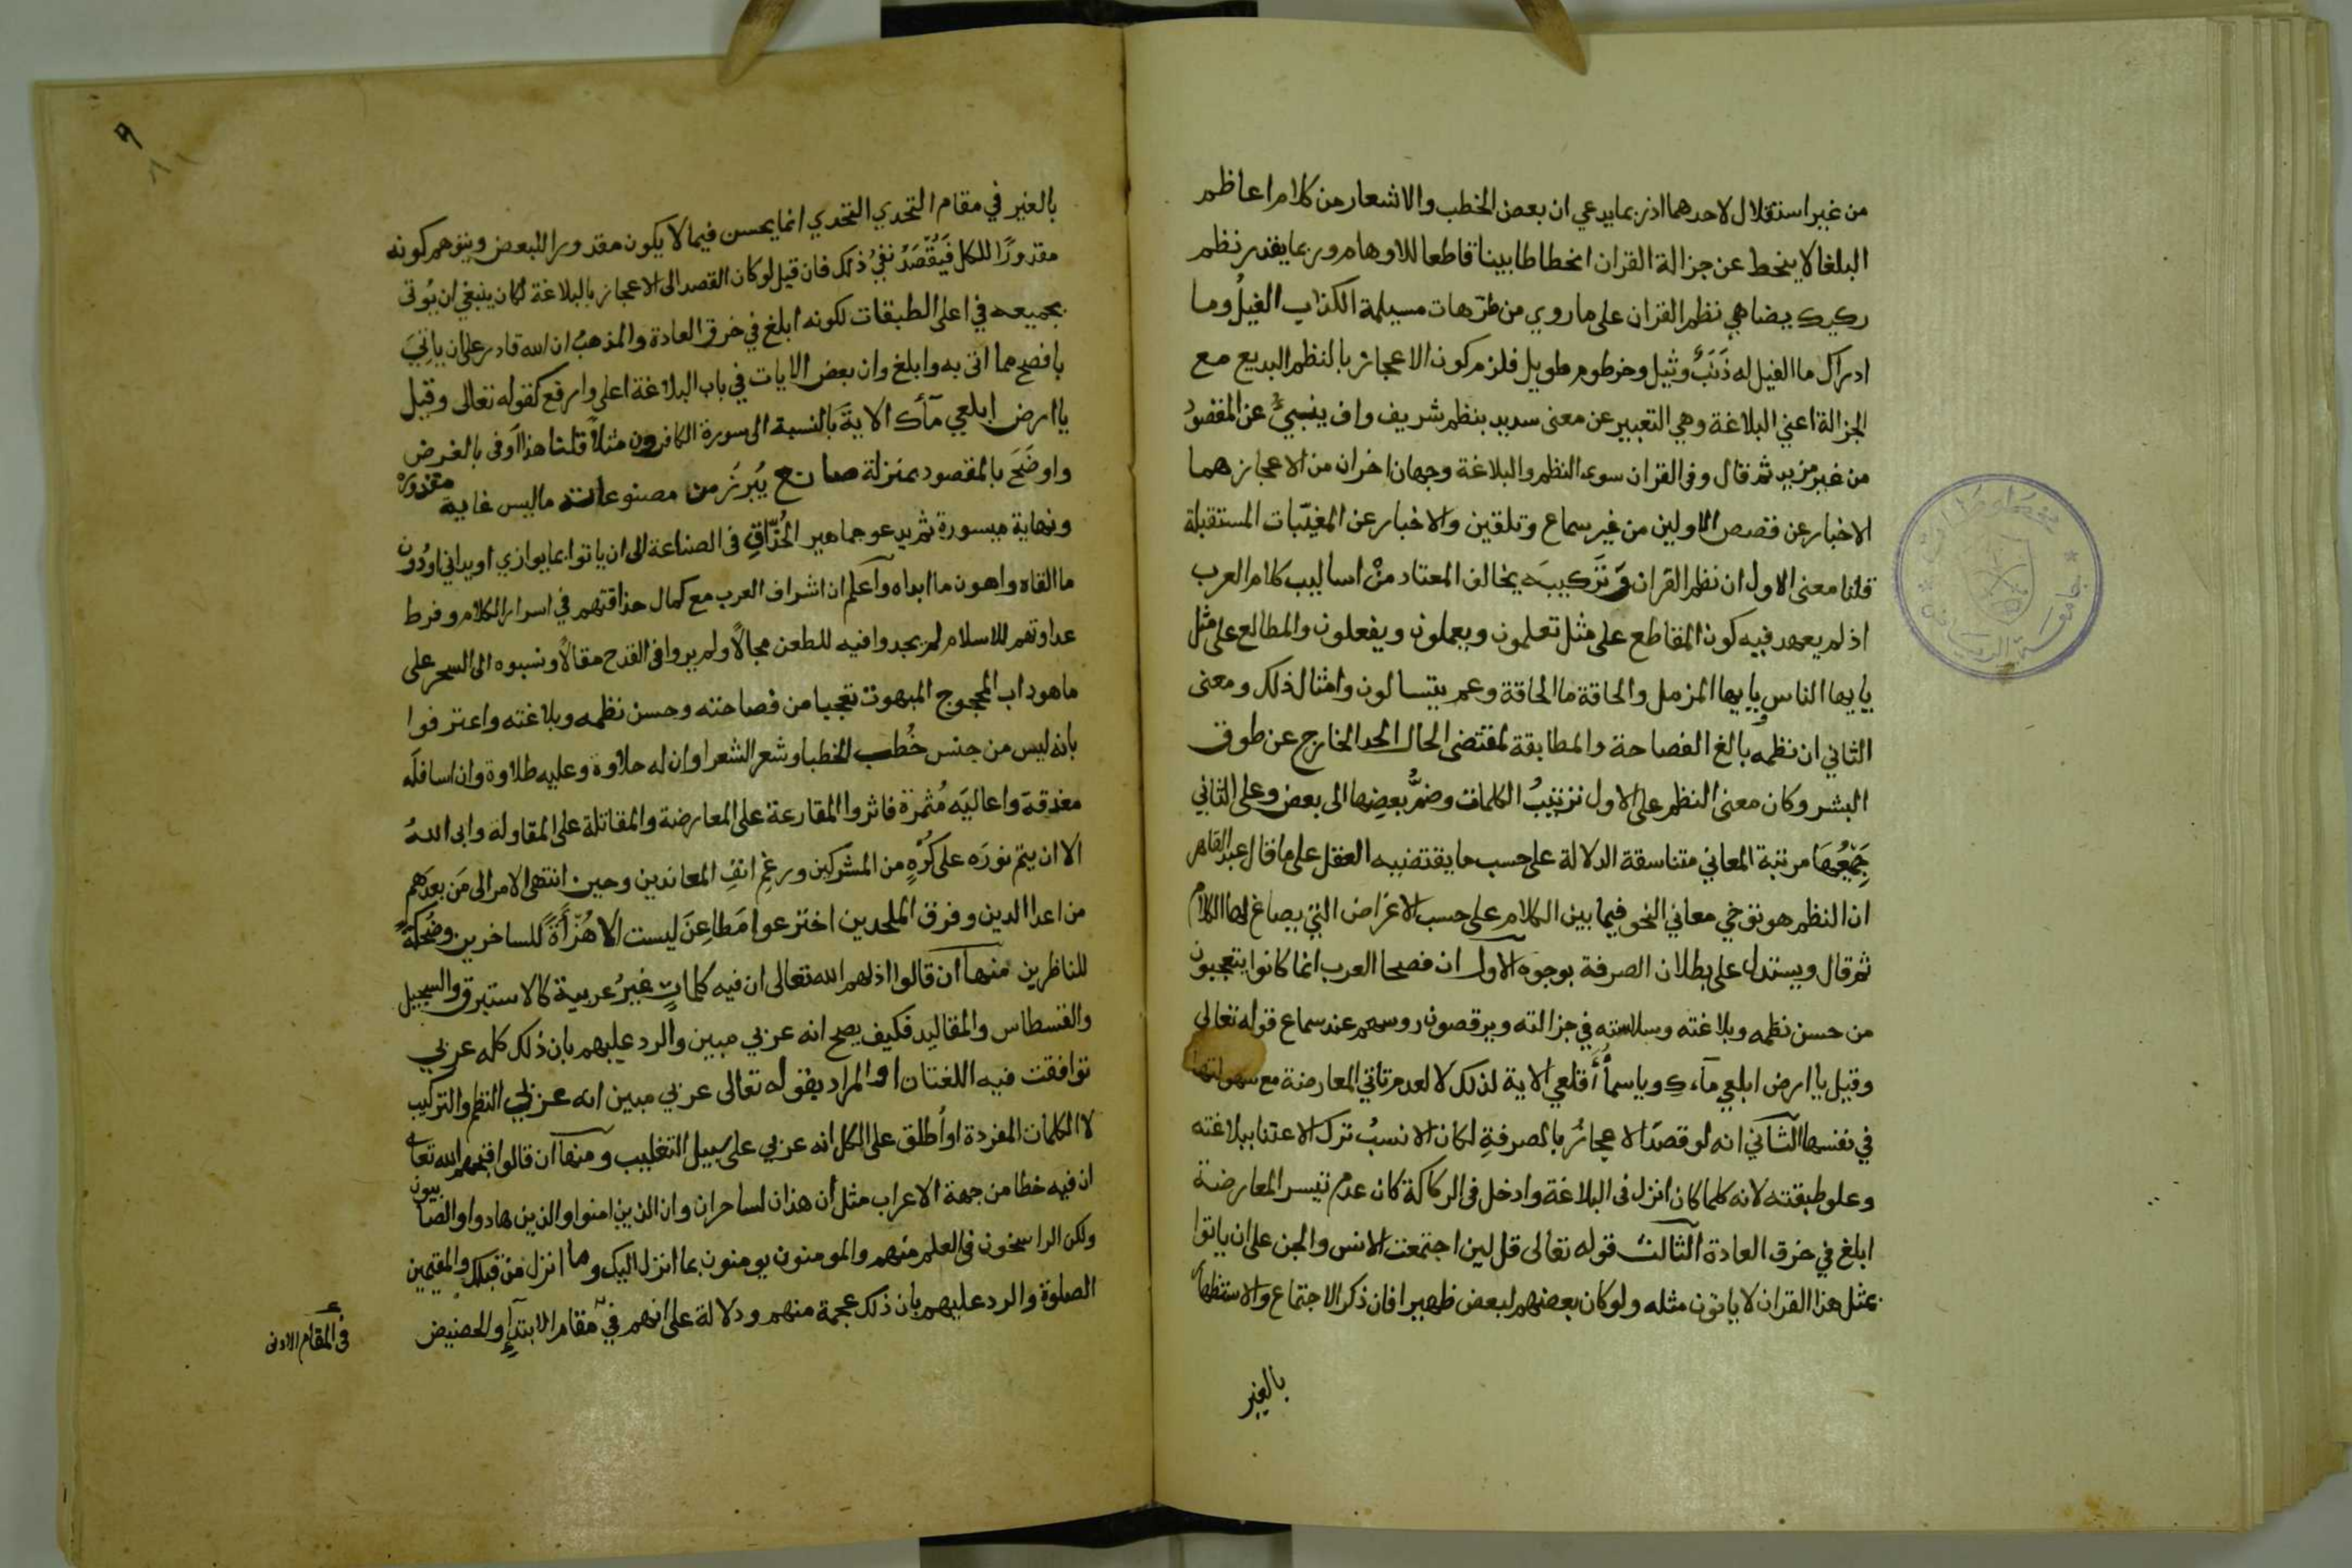 من غير استقلال لاحدهما اذ ربما يدعي ان بعض الخطب والاشعار من كلام اعاظم
البلغا لا ينحط عن جزالة القران انحطاطا بينا قاطعا للاوهام وربما يقدر نظم
ركيك يضاهي نظم القران على ما روي من طرّهات مسيلمة الكذاب الفيلُ وما
ادراك ما الفيل له ذَنَبٌ وثيل وخرطوم طويل فلزم كون الاعجاز بالنظم البديع مع
الجزالة اعني البلاغة وهي التعبير عن معنى سديد بنظم شريف واف ينبيءُ عن المقصود
من غير مزيد ثم قال وفي القران سوى النظم والبلاغة وجهان اخران من الاعجاز هما
الاخبار عن قصص الاولين من غير سماع وتلقين والاخبار عن المغيّبات المستقبلة
قلنا معنى الاول ان نظم القران وتركيبَه يخالف المعتاد منْ اساليب كلام العرب
اذ لم يعهد فيه كون المقاطع على مثل تعلمون ويعملون ويفعلون والمطالع على مثل
يا يها الناس يا يها المزمل والحاقة ما الحاقة وعم يتسالون وامثال ذلك ومعنى
الثاني ان نظمه بالغ الفصاحة والمطابقة لمقتضى الحال الحد الخارج عن طوق
البشر وكان معنى النظم على الاول ترتيبُ الكلمات وضمُّ بعضِها الى بعض وعلى الثاني
جَمْعُها مرتبة المعاني متناسقة الدلالة على حسب ما يقتضيه العقل على ما قال عبد القاهر
ان النظم هو توخي معاني النحو فيما بين الكلام على حسب الاغراض التي يصاغ لها الكلام
ثم قال ويستدل على بطلان الصرفة بوجوه الاول ان فصحا العرب انما كانوا يتعجبون
من حسن نظمه وبلاغته وسلاسته في جزالته ويرقصون روسهم عند سماع قوله تعالى
وقيل يا ارض ابلعي مآءك ويا سمآ أقلعي الاية لذلك لا لعدم تاتي المعارضة مع سهولتها
في نفسها الثاني انه لو قصدَ الاعجازُ بالصرفةِ لكان الانسبُ ترك الاعتنا ببلاغته
وعلو طبقته لانه كلما كان انزل في البلاغة وادخل في الركاكة كان عدم تيسر المعارضة
ابلغ في خرق العادة الثالث قوله تعالى قل لين اجتمعت الانس والجن على ان ياتوا
بمثل هذا القران لا ياتون مثله ولو كان بعضهم لبعض ظهيرا فان ذكر الاجتماع والاستظهار
بالغير
٩
بالغير في مقام التحدي التحدي انما يحسن فيما لا يكون مقدورا للبعض ويتوهم كونه
مقدورًا للكل فَيُقْصَدُ نفيُ ذلك فان قيل لو كان القصد الى الاعجاز بالبلاغة لكان ينبغي ان يُوتى
بجميعه في اعلى الطبقات لكونه ابلغ في خرق العادة والمذهب ان الله قادر على ان ياتيَ
بافصح مما اتى به وابلغ وان بعض الايات في باب البلاغة اعلى وارفع كقوله تعالى وقيل
يا ارض ابلعي مآءك الاية بالنسبة الى سورة الكافرون مثلاً قلنا هذا اوفى بالغرض
واوضَحَ بالمقصود بمنزلة صانع يُبرِزُ من مصنوعاته ما ليس غاية مقدوره
ونهاية ميسورة ثم يدعو جماهير الحُذّاقِ في الصناعة الى ان ياتوا بما يوازي او يداني او دُون
ما القاه واهون ما ابداه واعلم ان اشراف العرب مع كمال حذاقتهم في اسرار الكلام وفرط
عداوتهم للاسلام لم يجدوا فيه للطعن مجالاً ولم يروا في القدح مقالاً ونسبوه الى السحر على
ما هو داب المحجوج المبهوت تعجبا من فصاحته وحسن نظمه وبلاغته واعترفوا
بانه ليس من جنس خُطب الخطبا وشعر الشعرا وان له حلاوة وعليه طلاوة وان اسافلَه
مغدقة واعاليَه مُثمرة فاثروا المقارعة على المعارضة والمقاتلة على المقاولة وابى اللهُ
الا ان يتم نورَه على كُرْهٍ من المشركين ورغمِ انفِ المعاندين وحين انتهى الامر الى مَن بعدَهم
من اعدا الدين وفرق الملحدين اخترعوا مَطاعِنَ ليست الا هُزْأَةً للساخرين وضُحكةً
للناظرين منها ان قالوا اذلهم الله تعالى ان فيه كلماتٍ غيرُ عربية كالاستبرق والسجيل
والقسطاس والمقاليد فكيف يصح انه عربي مبين والرد عليهم بان ذلك كله عربي
توافقت فيه اللغتان او المراد بقوله تعالى عربي مبين انه عربي النظم والتركيب
لا الكلمات المفردة او أطلق على الكل انه عربي على سبيل التغليب ومنها ان قالوا قبحهم الله تعالى
ان فيه خطا من جهة الاعراب مثل أن هذان لساحران وان الذين امنوا والذين هادوا والصابيون
ولكن الراسخون في العلم منهم والمومنون يومنون بما انزل اليك وما انزل من قبلك والمقيمين
الصلوة والرد عليهم بان ذلك عجمة منهم ودلالة على انهم في مقام الابتدإ والحضيض
في المقام الادنى